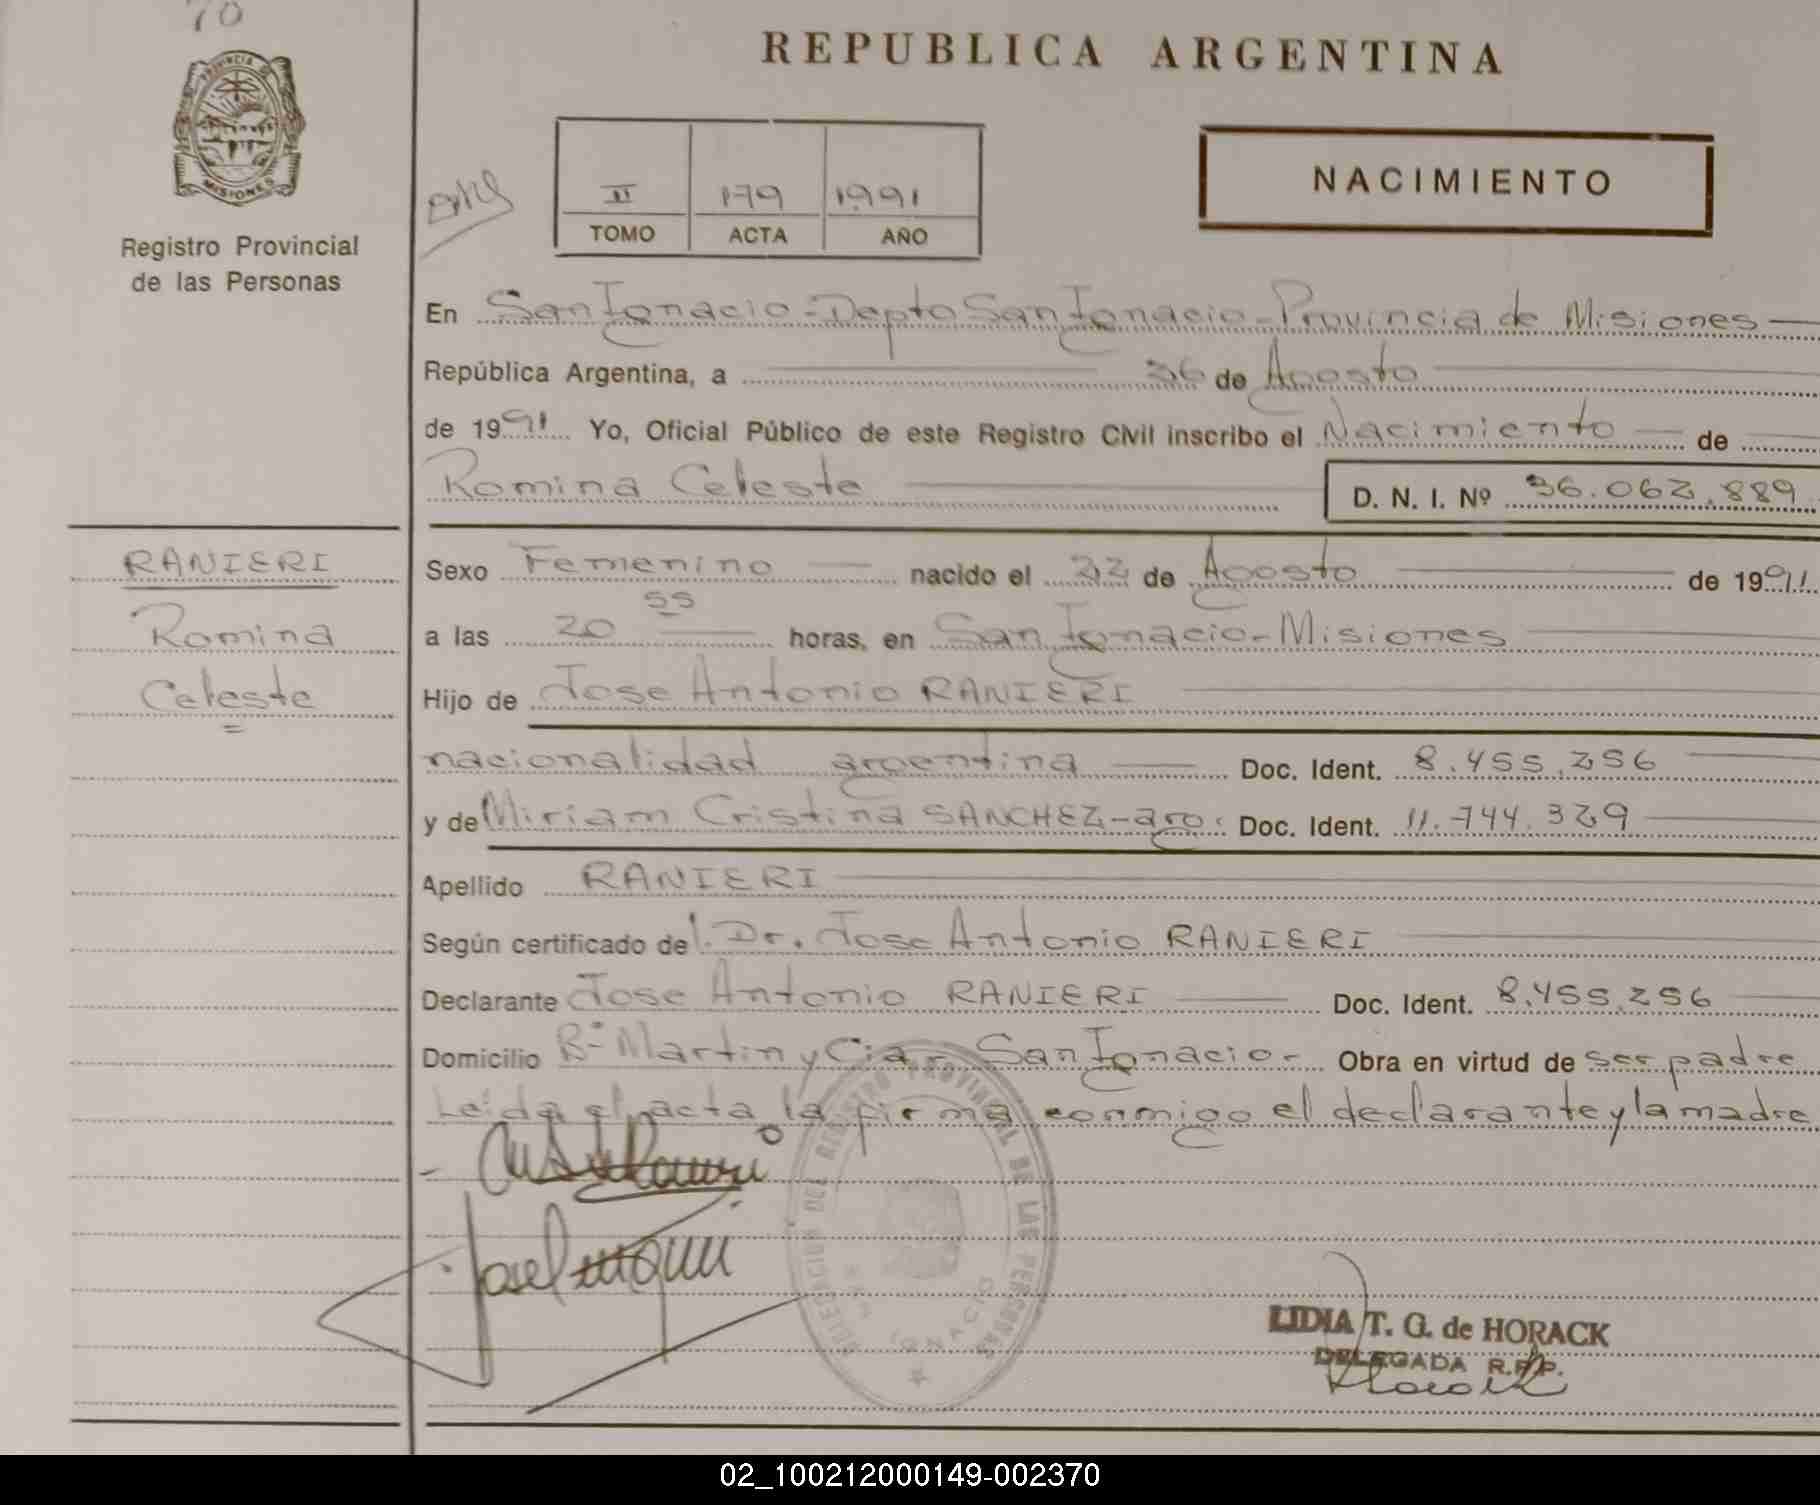 70
REPUBLICA ARGENTINA
PROVINCIA DE
MISIONES
Registro Provincial
de las Personas
II 179 1991
TOMO ACTA AÑO
NACIMIENTO
En San Ignacio - Depto San Ignacio - Provincia de Misiones
República Argentina, a 26 de Agosto
de 1991 Yo, Oficial Público de este Registro Civil inscribo el Nacimiento de
Romina Celeste D. N. I. Nº 36.062.889
RANIERI
Romina
Celeste
Sexo Femenino nacido el 22 de Agosto de 1991
a las 20 55 horas, en San Ignacio - Misiones
Hijo de Jose Antonio RANIERI
nacionalidad argentina Doc. Ident. 8.455.256
y de Miriam Cristina SANCHEZ - arg. Doc. Ident. 11.744.329
Apellido RANIERI
Según certificado del. Dr. Jose Antonio RANIERI
Declarante Jose Antonio RANIERI Doc. Ident. 8.455.256
Domicilio Bº Martin y Cia - San Ignacio - Obra en virtud de ser padre
Leida el acta la firma conmigo el declarante y la madre
DEL REGISTRO PROVINCIAL DE LAS PERSONAS
SAN IGNACIO
LIDIA T. G. de HORACK
DELEGADA R.P.P.
02_100212000149-002370